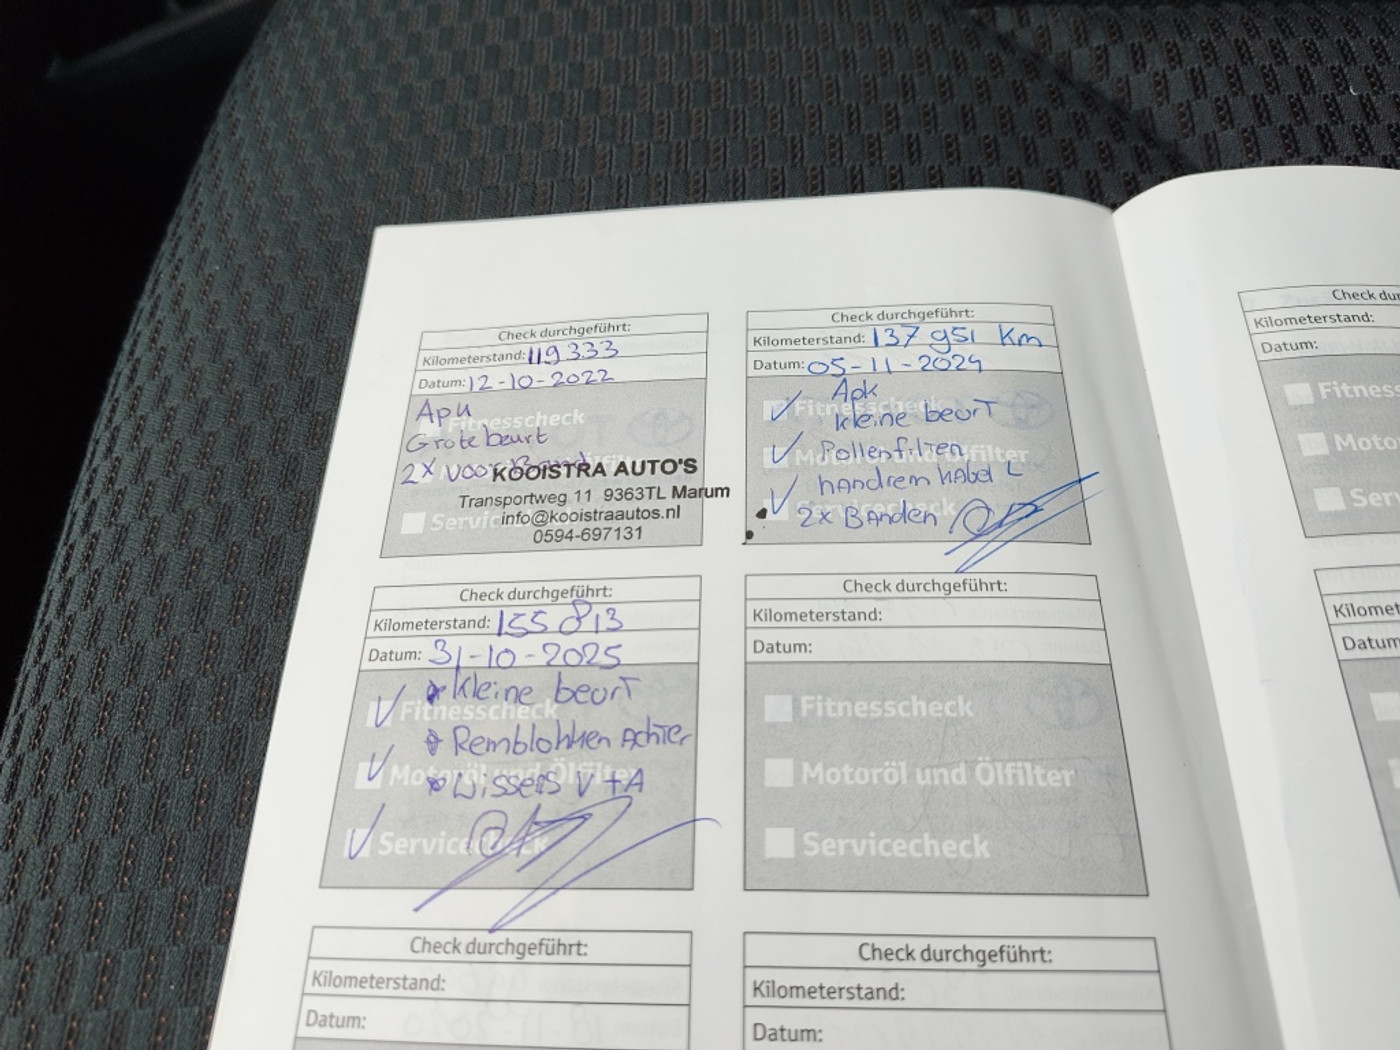 Check durchgeführt:
Kilometerstand: 119333
Datum: 12-10-2022
Apk
Fitnesscheck
Grote beurt
2x voor Band
KOOISTRA AUTO'S
Transportweg 11 9363TL Marum
Servicecheck
info@kooistraautos.nl
0594-697131
Check durchgeführt:
Kilometerstand: 137951 Km
Datum: 05-11-2024
Apk
Fitnesscheck
kleine beurt
Pollenfilter
Motoröl und Ölfilter
handrem kabel L
Servicecheck
2x Banden
Check durchgeführt:
Kilometerstand: 155813
Datum: 31-10-2025
* kleine beurt
Fitnesscheck
* Remblokken Achter
Motoröl und Ölfilter
* Wissers V+A
Servicecheck
Check durchgeführt:
Kilometerstand:
Datum:
Fitnesscheck
Motoröl und Ölfilter
Servicecheck
Check durchgeführt:
Kilometerstand:
Datum:
Check durchgeführt:
Kilometerstand:
Datum:
Check dur
Kilometerstand:
Datum:
Fitness
Moto
Ser
Kilomet
Datum